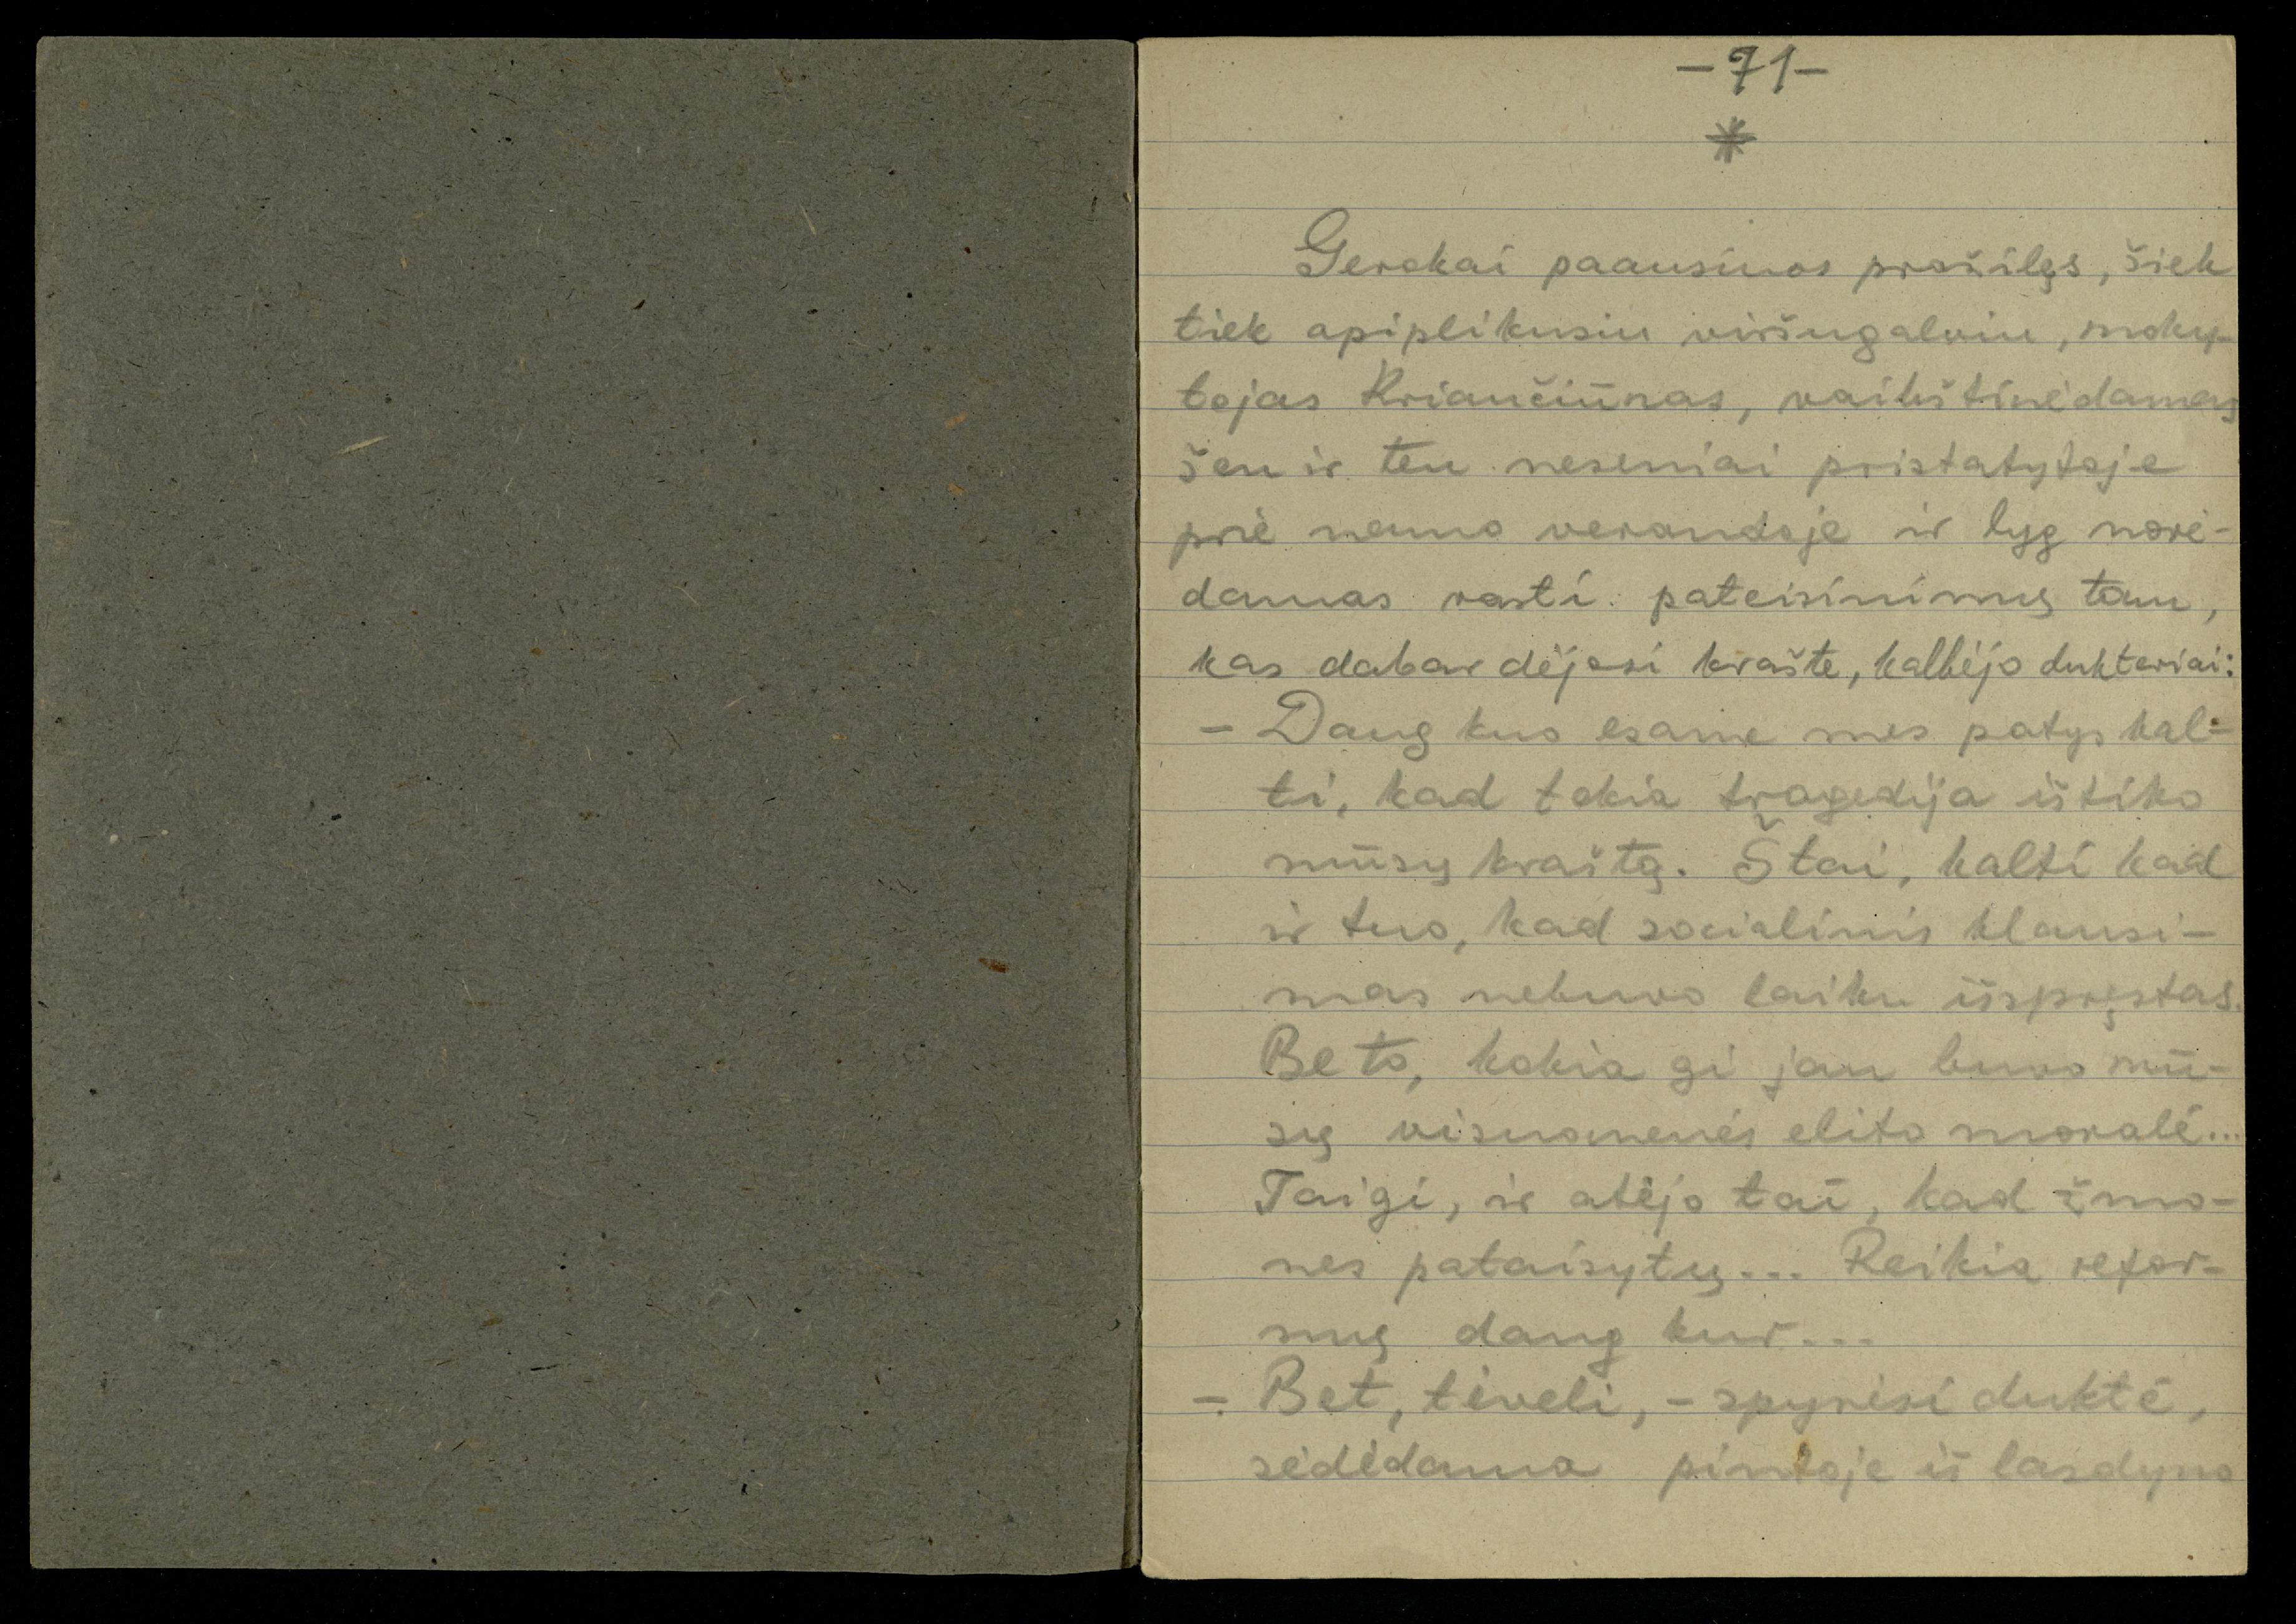 -71-
*
Gerokai paausiuos pražilęs, šiek
tiek apiplikusiu viršugalviu, moky-
tojas Kriaučiūnas, vaikštinėdamas
šen ir ten neseniai pristatytoje
prie namo verandoje ir lyg norė-
damas rasti pateisinimų tam,
kas dabar dėjosi krašte, kalbėjo dukteriai:
- Daug kuo esame mes patys kal-
ti, kad tokia tragedija ištiko
mūsų kraštą. Štai, kalti kad
ir tuo, kad socialinis klausi-
mas nebuvo laiku išspręstas.
Be to, kokia gi jau buvo mū-
sų visuomenės elito moralė...
Taigi, ir atėjo tai, kad žmo-
nes pataisytų... Reikia refor-
mų daug kur...
- Bet, tėveli, - spyrėsi duktė,
sėdėdama pintoje iš lazdyno